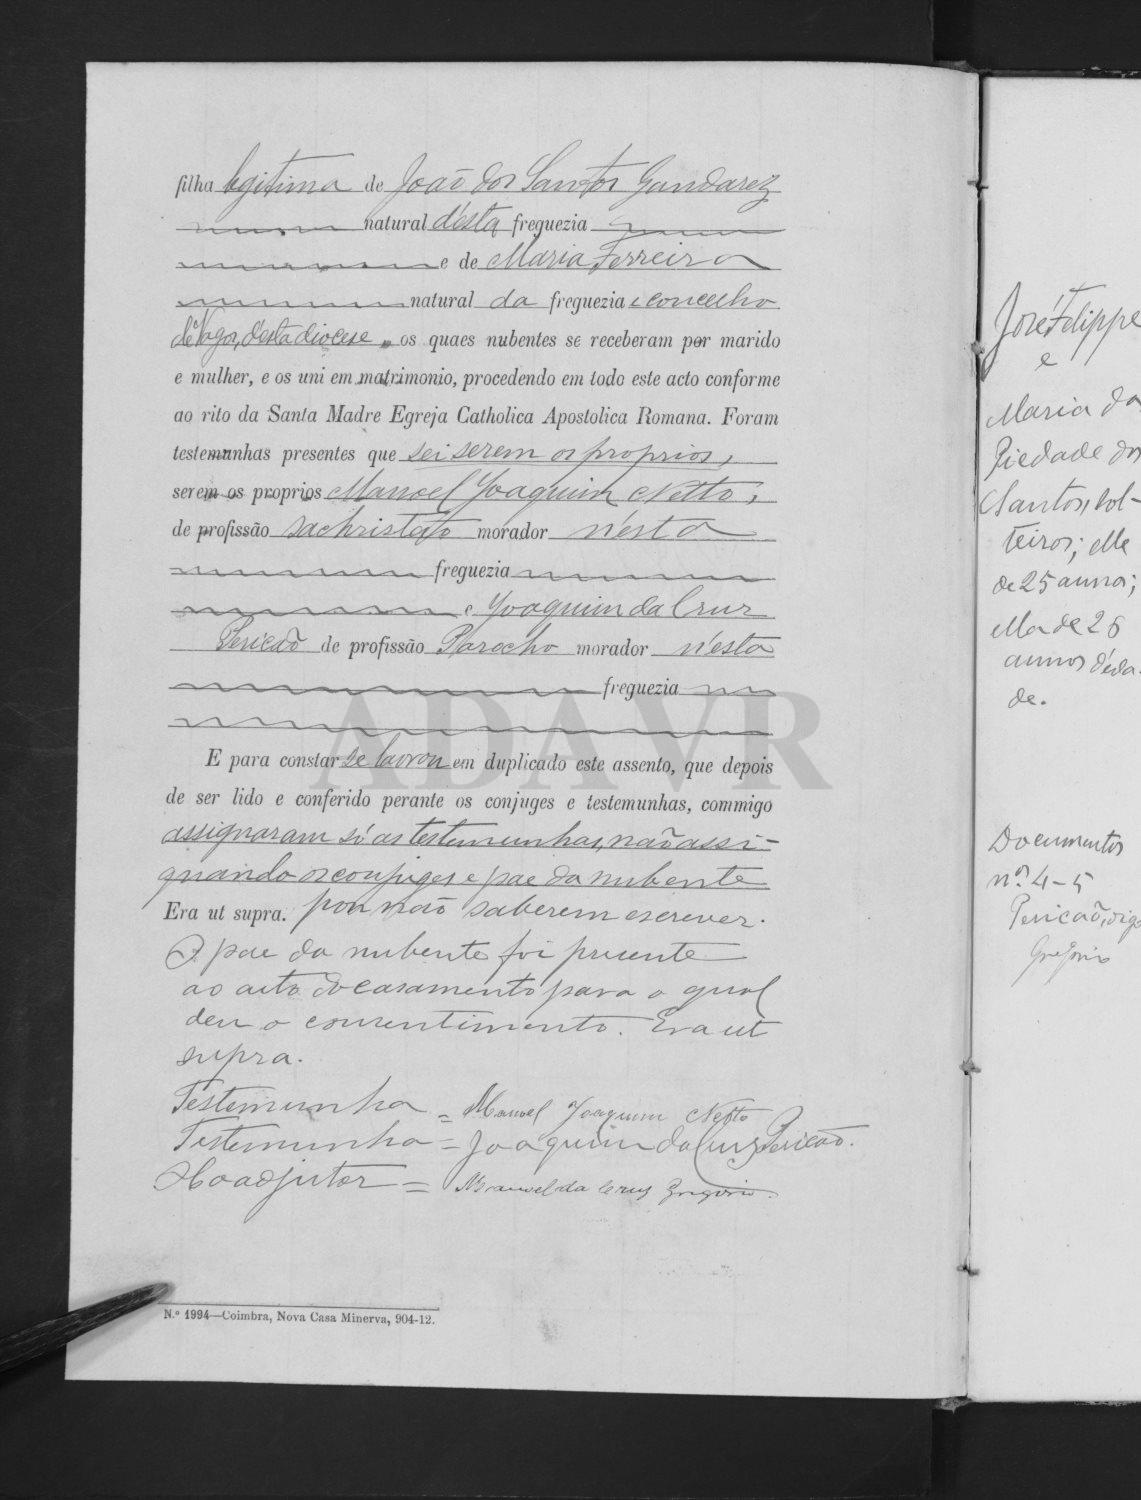 filha legitima de João dos Santos Gandarez
natural d'esta freguezia
e de Maria Ferreira
natural da freguezia e concelho
de Vagos, d'esta diocese, os quaes nubentes se receberam por marido
e mulher, e os uni em matrimonio, procedendo em todo este acto conforme
ao rito da Santa Madre Egreja Catholica Apostolica Romana. Foram
testemunhas presentes que sei serem os proprios,
serem os proprios Manoel Joaquim Netto,
de profissão sachristão morador n'esta
freguezia
e Joaquim da Cruz
Pericão de profissão Parocho morador n'esta
freguezia
E para constar se lavrou em duplicado este assento, que depois
de ser lido e conferido perante os conjuges e testemunhas, commigo
assignaram só as testemunhas, não assi-
gnando os conjuges e pae da nubente
Era ut supra. por não saberem escrever.
O pae da nubente foi presente
ao acto do casamento para o qual
deu o consentimento. Era ut
supra.
Testemunha = Manoel Joaquim Netto
Testemunha = Joaquim da Cruz Pericão.
Coadjutor = Manuel da Cruz Gregorio.
N.º 1994—Coimbra, Nova Casa Minerva, 904-12.
José Filippe
e
Maria da
Piedade dos
Santos, sol-
teiros; elle
de 25 annos;
ella de 26
annos d'eda-
de.
Documentos
nos. 4-5
Pericão, digo
Gregorio
ADAVR